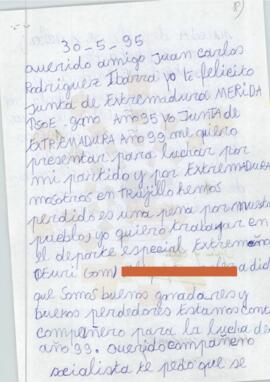 30-5-95
Querido amigo Juan Carlos
Rodriguez Ibarra yo te felicito
Junta de Extremadura MERIDA
PSOE-gano AÑO 95 yo JUNTA de
EXTREMADURA AÑO 99 me quiero
presentar para luchar por
mi partido y por EXTREMADURA
nosotros en TRujillo hemos
perdido es una pena por nuestro
pueblo, yo quiero trabajar en
el deporte especial Extremeño
com
que somos buenos ganadores y
buenos perdedores Estamos
compañero para la lucha de
año 99. Querido compañero
socialista te pedo que se